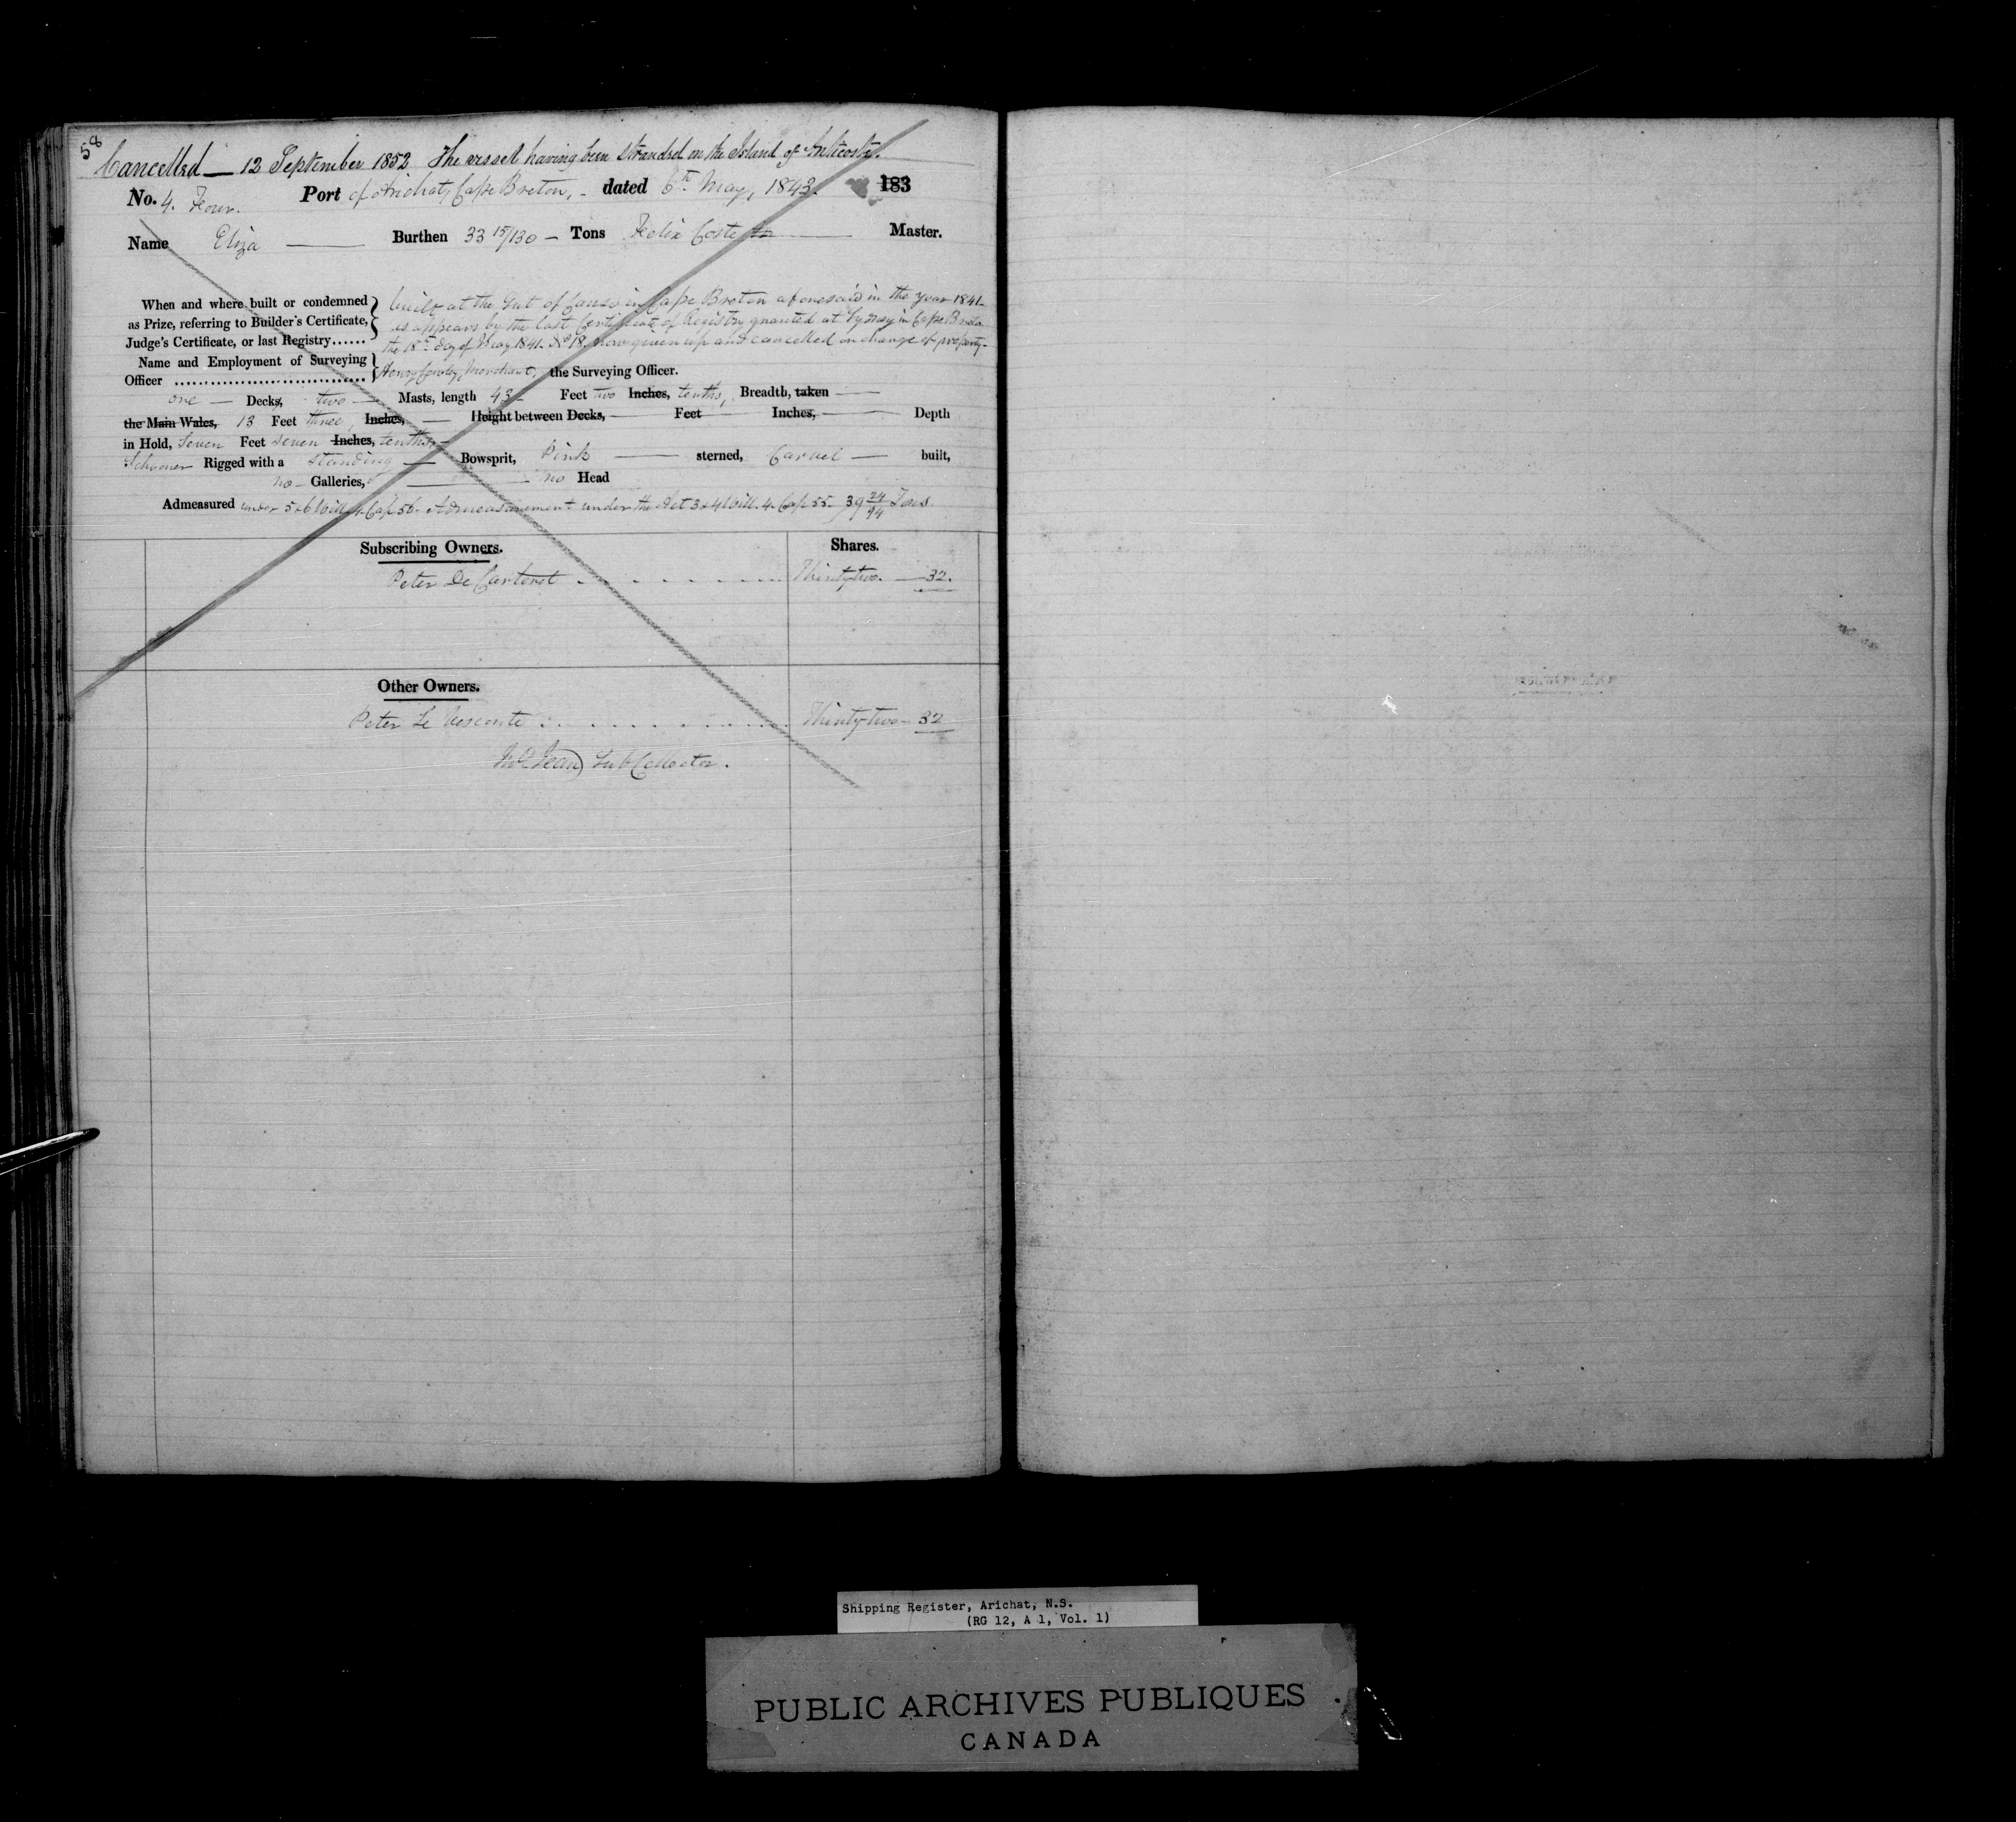 58
Cancelled — 12 September 1852 The vessel having been stranded on the Island of Anticosti.
No. 4. Four. Port of Arichat, Cape Breton, - dated 6th May, 1843. 183
Name Eliza — Burthen 33 15/130 — Tons Felix Coste — Master.
When and where built or condemned as Prize, referring to Builder's Certificate, Judge's Certificate, or last Registry......
built at the Gut of Canso in Cape Breton aforesaid in the year 1841
as appears by the last Certificate of Registry granted at Sydney in Cape Breton
the 18th day of May 1841. No 18. now given up and cancelled on change of property.
Name and Employment of Surveying
Officer ................................ Henry merchant, the Surveying Officer.
one — Decks, two — Masts, length 43 - Feet two Inches, tenths, Breadth, taken —
the Main Wales, 13 Feet three, Inches, — Height between Decks, — Feet — Inches, — Depth
in Hold, Seven Feet seven Inches, tenths, -
Schooner Rigged with a standing — Bowsprit, Pink — sterned, Carvel — built,
no - Galleries, — no Head
Admeasured under 5 & 6 Will. 4. Cap 56 - Admeasurement under the Act 3 & 4 Will. 4. Cap 55 - 39 24/94 Tons
Subscribing Owners. Shares.
Peter De Carteret . . . . . . . . Thirty-two. — 32.
Other Owners.
Peter Le Vesconte . . . . . . . . Thirty-two - 32
Jean Sub Collector.
Shipping Register, Arichat, N.S.
(RG 12, A 1, Vol. 1)
PUBLIC ARCHIVES PUBLIQUES
CANADA